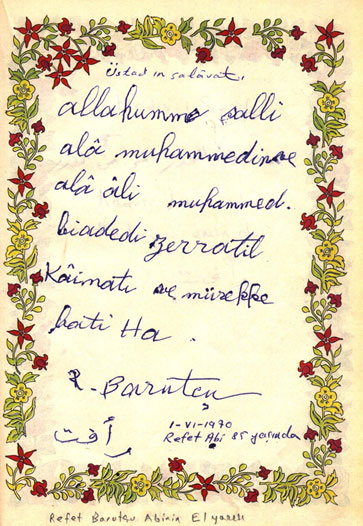 Üstad ın salâvatı
allahumme salli
alâ muhammedin ve
alâ âli muhammed.
biadedi zerratil
Kâinatı ve mürekke
bati Ha .
R. Barutçu
رأفت
1-VI-1970
Refet Abi 85 yaşında
Refet Barutçu Abinin El yazılı